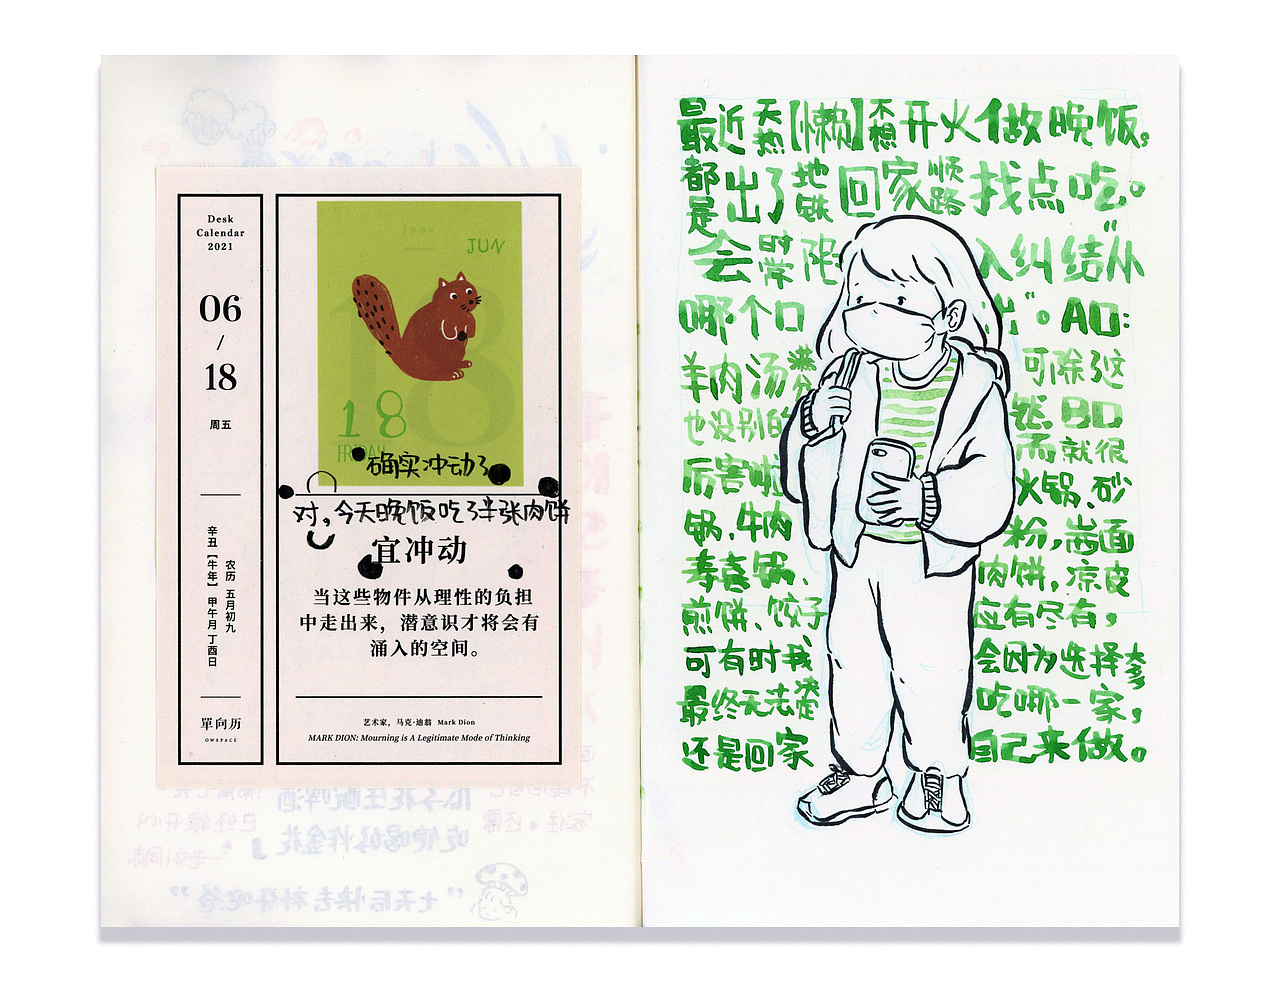 Desk
Calendar
2021
06
/
18
周五
农历 五月初九
辛丑【牛年】甲午月 丁酉日
單向历
OWSPACE
JUN
18
FRIDAY
确实冲动了
对，今天晚饭吃了半张肉饼
宜冲动
当这些物件从理性的负担
中走出来，潜意识才将会有
涌入的空间。
艺术家，马克·迪翁 Mark Dion
MARK DION: Mourning is A Legitimate Mode of Thinking
最近天热【懒】不想开火做晚饭，
都是出了地铁回家顺路找点吃。
会时常陷入纠结“从
哪个口出”。A口：
羊肉汤满分可除了这
也没别的 B口
而就很
厉害啦火锅、砂
锅、牛肉粉，卤面
寿喜锅、肉饼，凉皮
煎饼、饺子应有尽有，
可有时我会因为选择太多
最终无法决定吃哪一家，
还是回家自己来做。